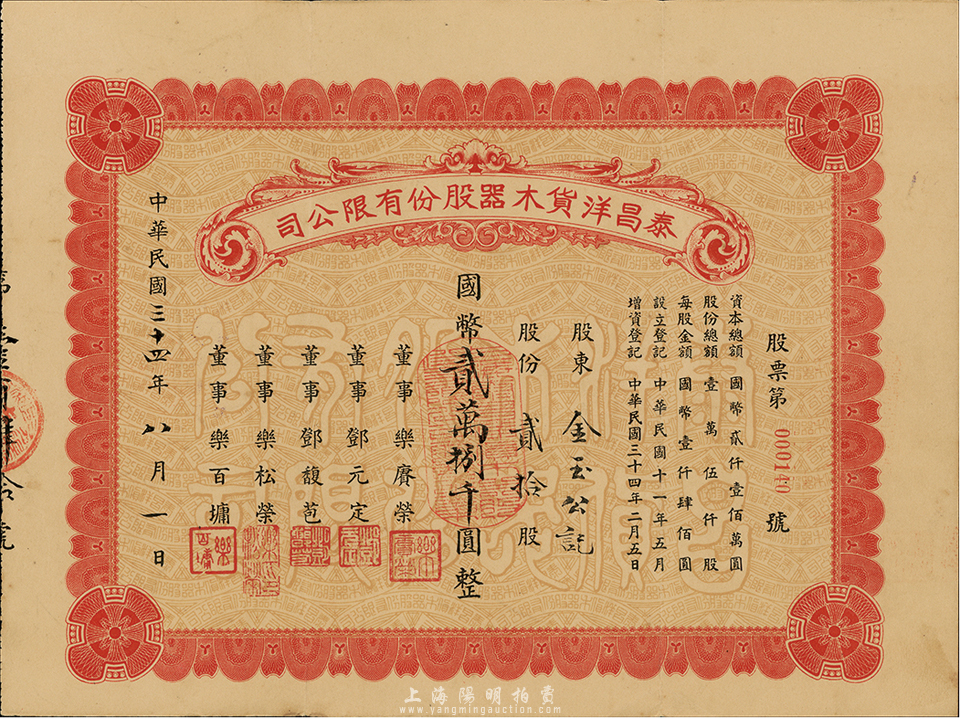 泰昌洋貨木器股份有限公司
股票第 000140 號
資本總額 國幣貳仟壹佰萬圓
股份總額 壹萬伍仟股
每股金額 國幣壹仟肆佰圓
設立登記 中華民國十一年五月
增資登記 中華民國三十四年二月五日
股東 金玉公記
股份 貳拾股
國幣貳萬捌千圓整
董事 樂賡榮
董事 鄧元定
董事 鄧馥苞
董事 樂松榮
董事 樂百墉
中華民國三十四年八月一日
上海陽明拍賣
www.yangmingauction.com